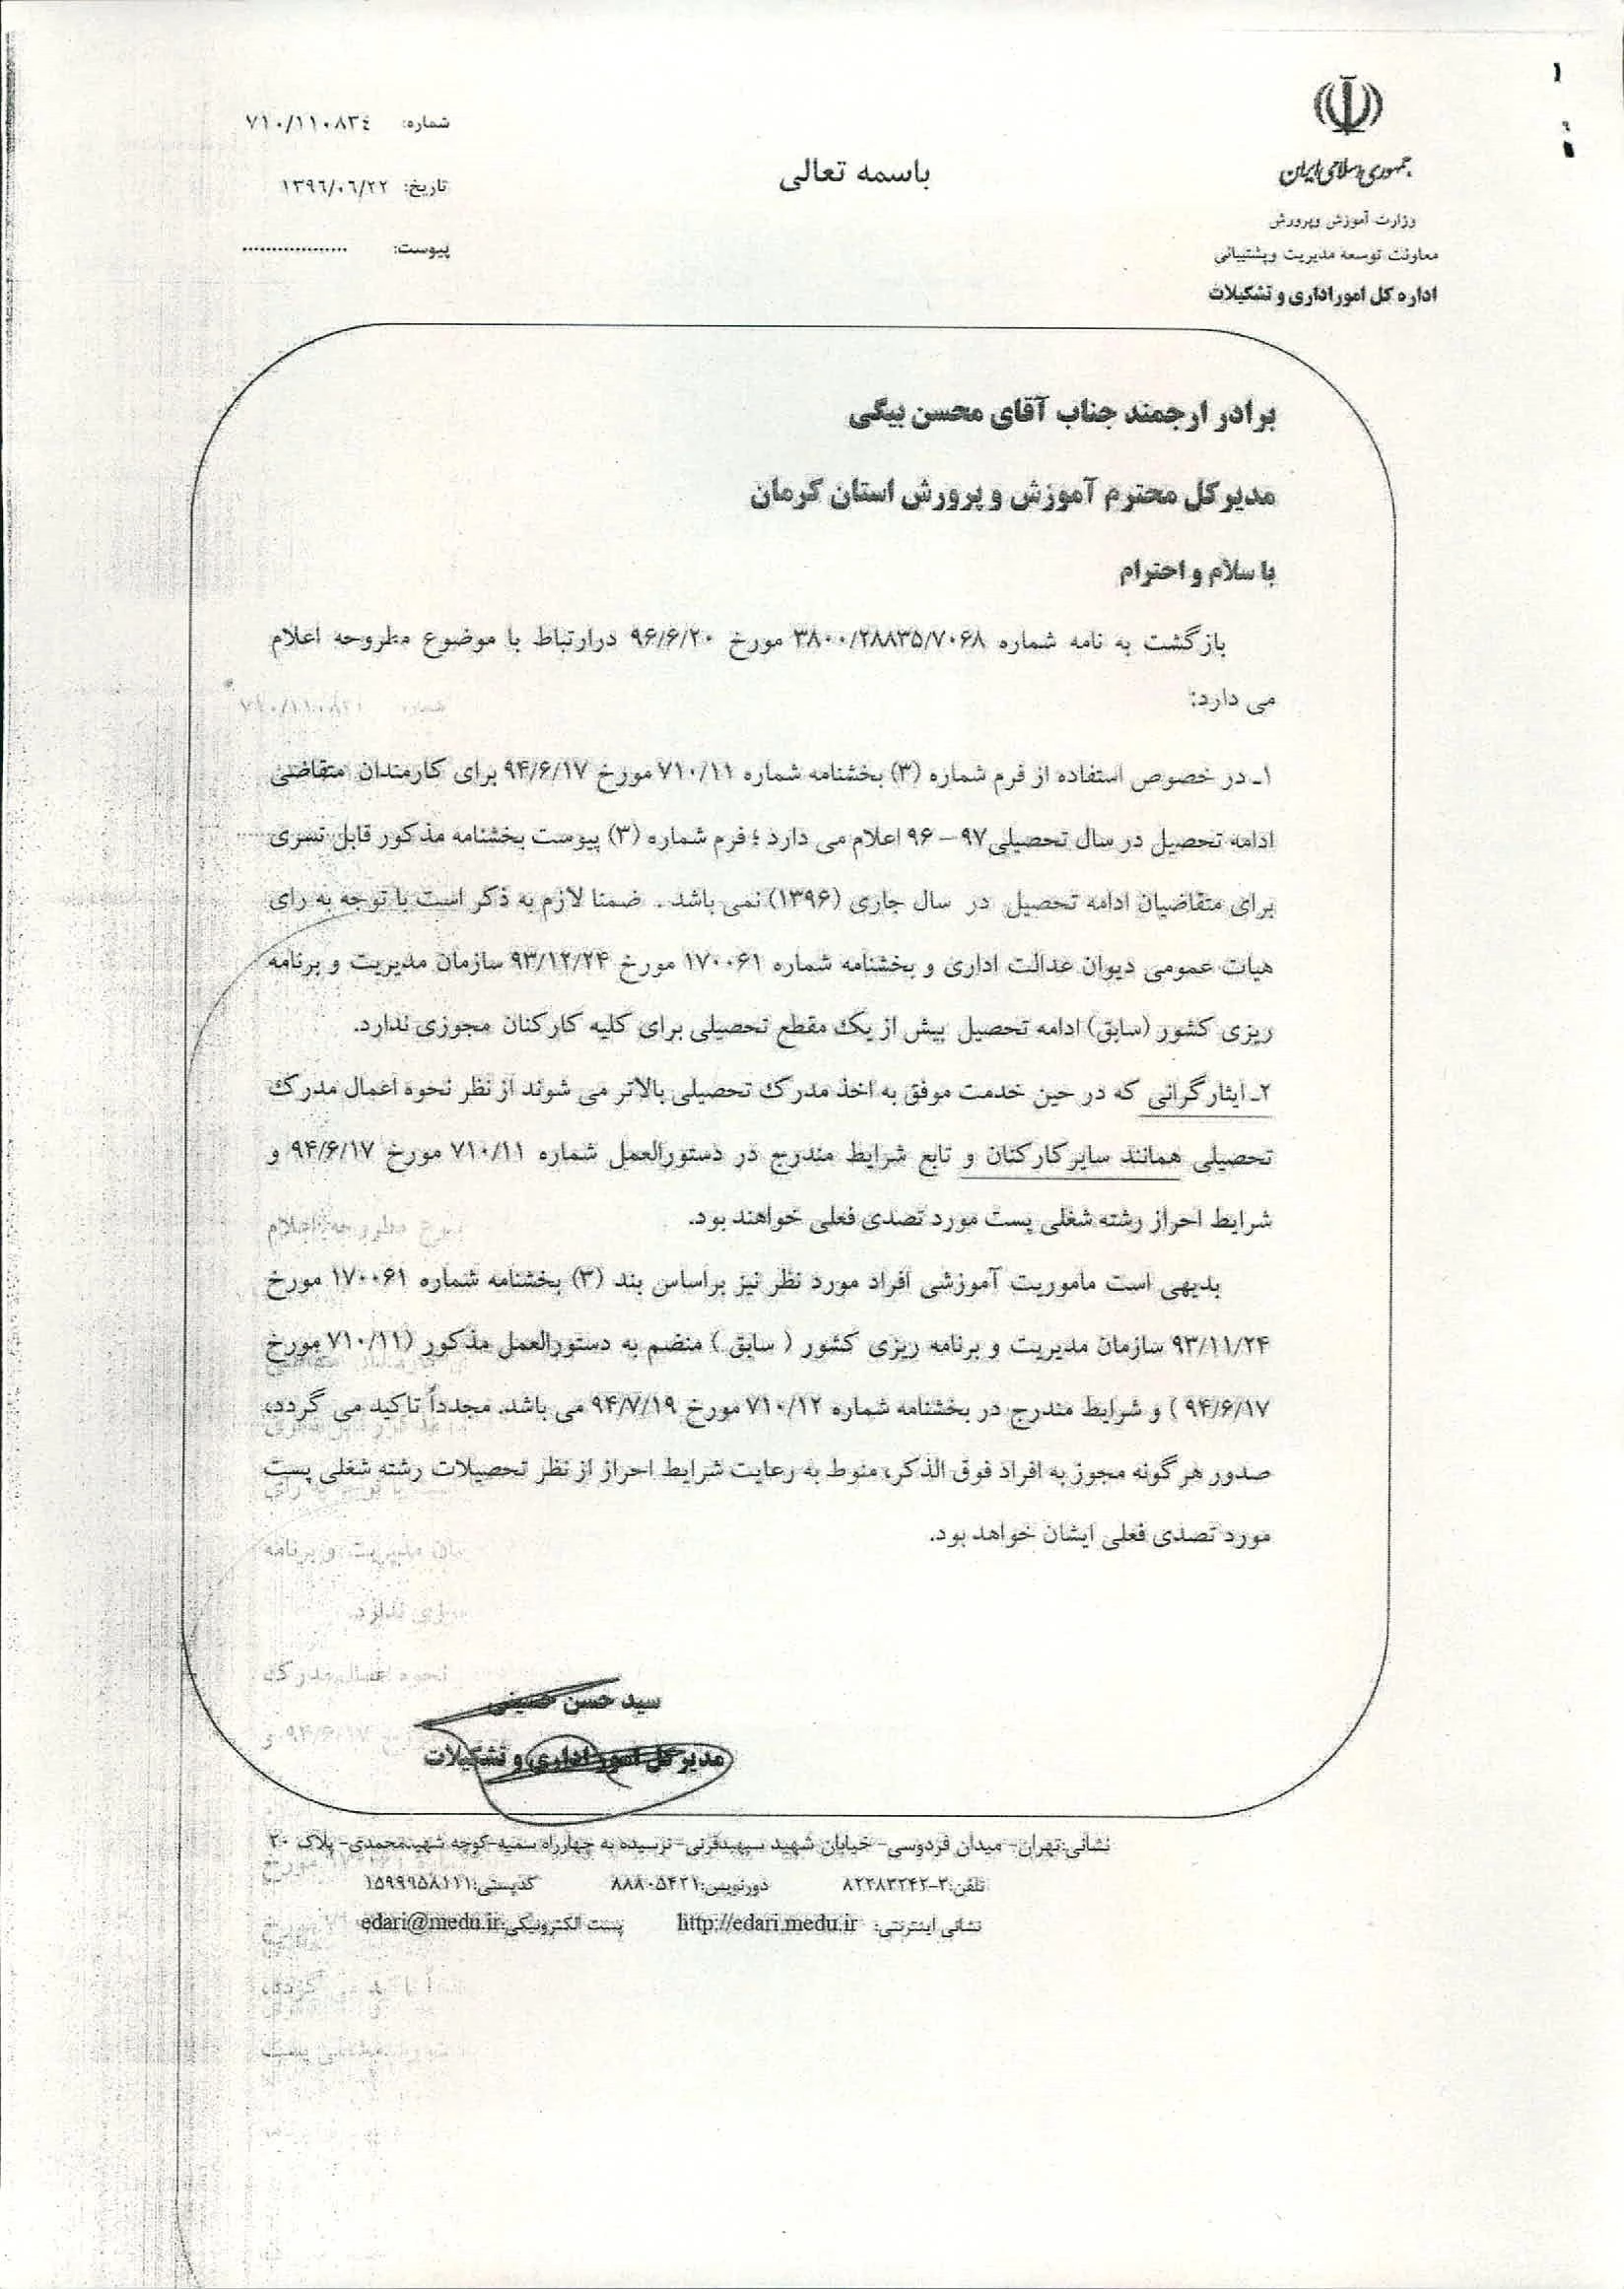 جمهوری اسلامی ایران
وزارت آموزش وپرورش
معاونت توسعه مدیریت وپشتیبانی
اداره کل اموراداری و تشکیلات
باسمه تعالی
شماره: ۷۱۰/۱۱۰۸۳٤
تاریخ: ۱۳۹٦/۰٦/۲۲
پیوست: ..................
برادر ارجمند جناب آقای محسن بیگی
مدیرکل محترم آموزش و پرورش استان کرمان
با سلام و احترام
بازگشت به نامه شماره ۳۸۰۰/۲۸۸۳۵/۷۰۶۸ مورخ ۹۶/۶/۲۰ درارتباط با موضوع مطروحه اعلام
می دارد:
۱ـ در خصوص استفاده از فرم شماره (۳) بخشنامه شماره ۷۱۰/۱۱ مورخ ۹۴/۶/۱۷ برای کارمندان متقاضی
ادامه تحصیل در سال تحصیلی۹۷ – ۹۶ اعلام می دارد ؛ فرم شماره (۳) پیوست بخشنامه مذکور قابل تسری
برای متقاضیان ادامه تحصیل در سال جاری (۱۳۹۶) نمی باشد . ضمنا لازم به ذکر است با توجه به رای
هیات عمومی دیوان عدالت اداری و بخشنامه شماره ۱۷۰۰۶۱ مورخ ۹۳/۱۲/۲۴ سازمان مدیریت و برنامه
ریزی کشور (سابق) ادامه تحصیل بیش از یک مقطع تحصیلی برای کلیه کارکنان مجوزی ندارد.
۲ـ ایثارگرانی که در حین خدمت موفق به اخذ مدرک تحصیلی بالاتر می شوند از نظر نحوه اعمال مدرک
تحصیلی همانند سایرکارکنان و تابع شرایط مندرج در دستورالعمل شماره ۷۱۰/۱۱ مورخ ۹۴/۶/۱۷ و
شرایط احراز رشته شغلی پست مورد تصدی فعلی خواهند بود.
بدیهی است ماموریت آموزشی افراد مورد نظر نیز براساس بند (۳) بخشنامه شماره ۱۷۰۰۶۱ مورخ
۹۳/۱۱/۲۴ سازمان مدیریت و برنامه ریزی کشور ( سابق ) منضم به دستورالعمل مذکور (۷۱۰/۱۱ مورخ
۹۴/۶/۱۷ ) و شرایط مندرج در بخشنامه شماره ۷۱۰/۱۲ مورخ ۹۴/۷/۱۹ می باشد. مجدداً تاکید می گردد،
صدور هرگونه مجوز به افراد فوق الذکر، منوط به رعایت شرایط احراز از نظر تحصیلات رشته شغلی پست
مورد تصدی فعلی ایشان خواهد بود.
سید حسن حسینی
مدیرکل امور اداری و تشکیلات
نشانی:تهران- میدان فردوسی- خیابان شهید سپهبدقرنی- نرسیده به چهارراه سمیه-کوچه شهیدمحمدی- پلاک ۲۰
تلفن:۳-۸۲۲۸۳۲۴۲ دورنویس:۸۸۸۰۵۴۲۱ کدپستی:۱۵۹۹۹۵۸۱۱۱
نشانی اینترنتی: http://edari.medu.ir پست الکترونیکی:edari@medu.ir